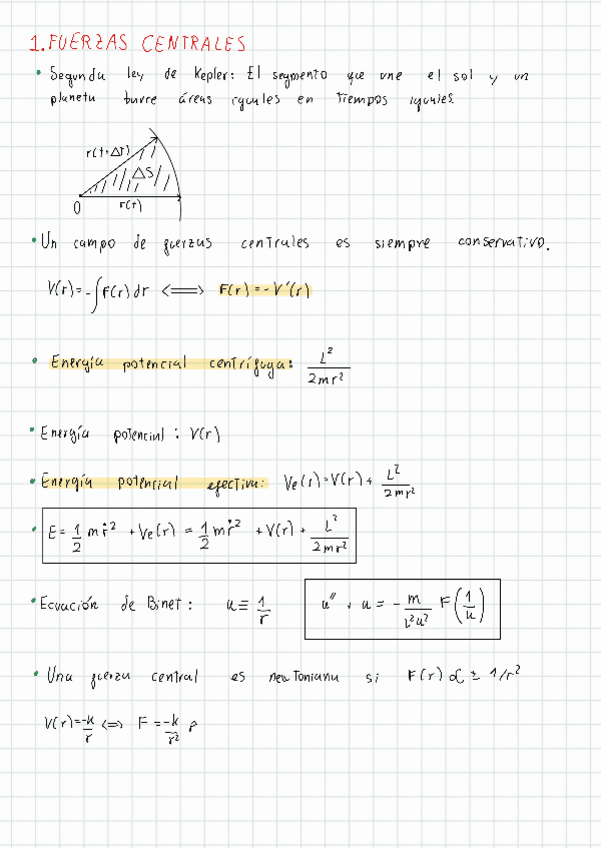 1. FUERZAS CENTRALES
• Segunda ley de Kepler: El segmento que une el sol y un
planeta barre áreas iguales en tiempos iguales.
r(t+Δt)
ΔS
O r(t)
• Un campo de fuerzas centrales es siempre conservativo.
V(r) = -∫F(r) dr ⟺ F(r) = -V'(r)
• Energía potencial centrífuga: L²/2mr²
• Energía potencial: V(r)
• Energía potencial efectiva: Ve(r) = V(r) + L²/2mr²
• E = 1/2 mṙ² + Ve(r) = 1/2 mṙ² + V(r) + L²/2mr²
• Ecuación de Binet: u ≡ 1/r u'' + u = - m/L²u² F(1/u)
• Una fuerza central es newtoniana si F(r) ∝ ± 1/r²
V(r) = -k/r ⟺ F = -k/r² r̂